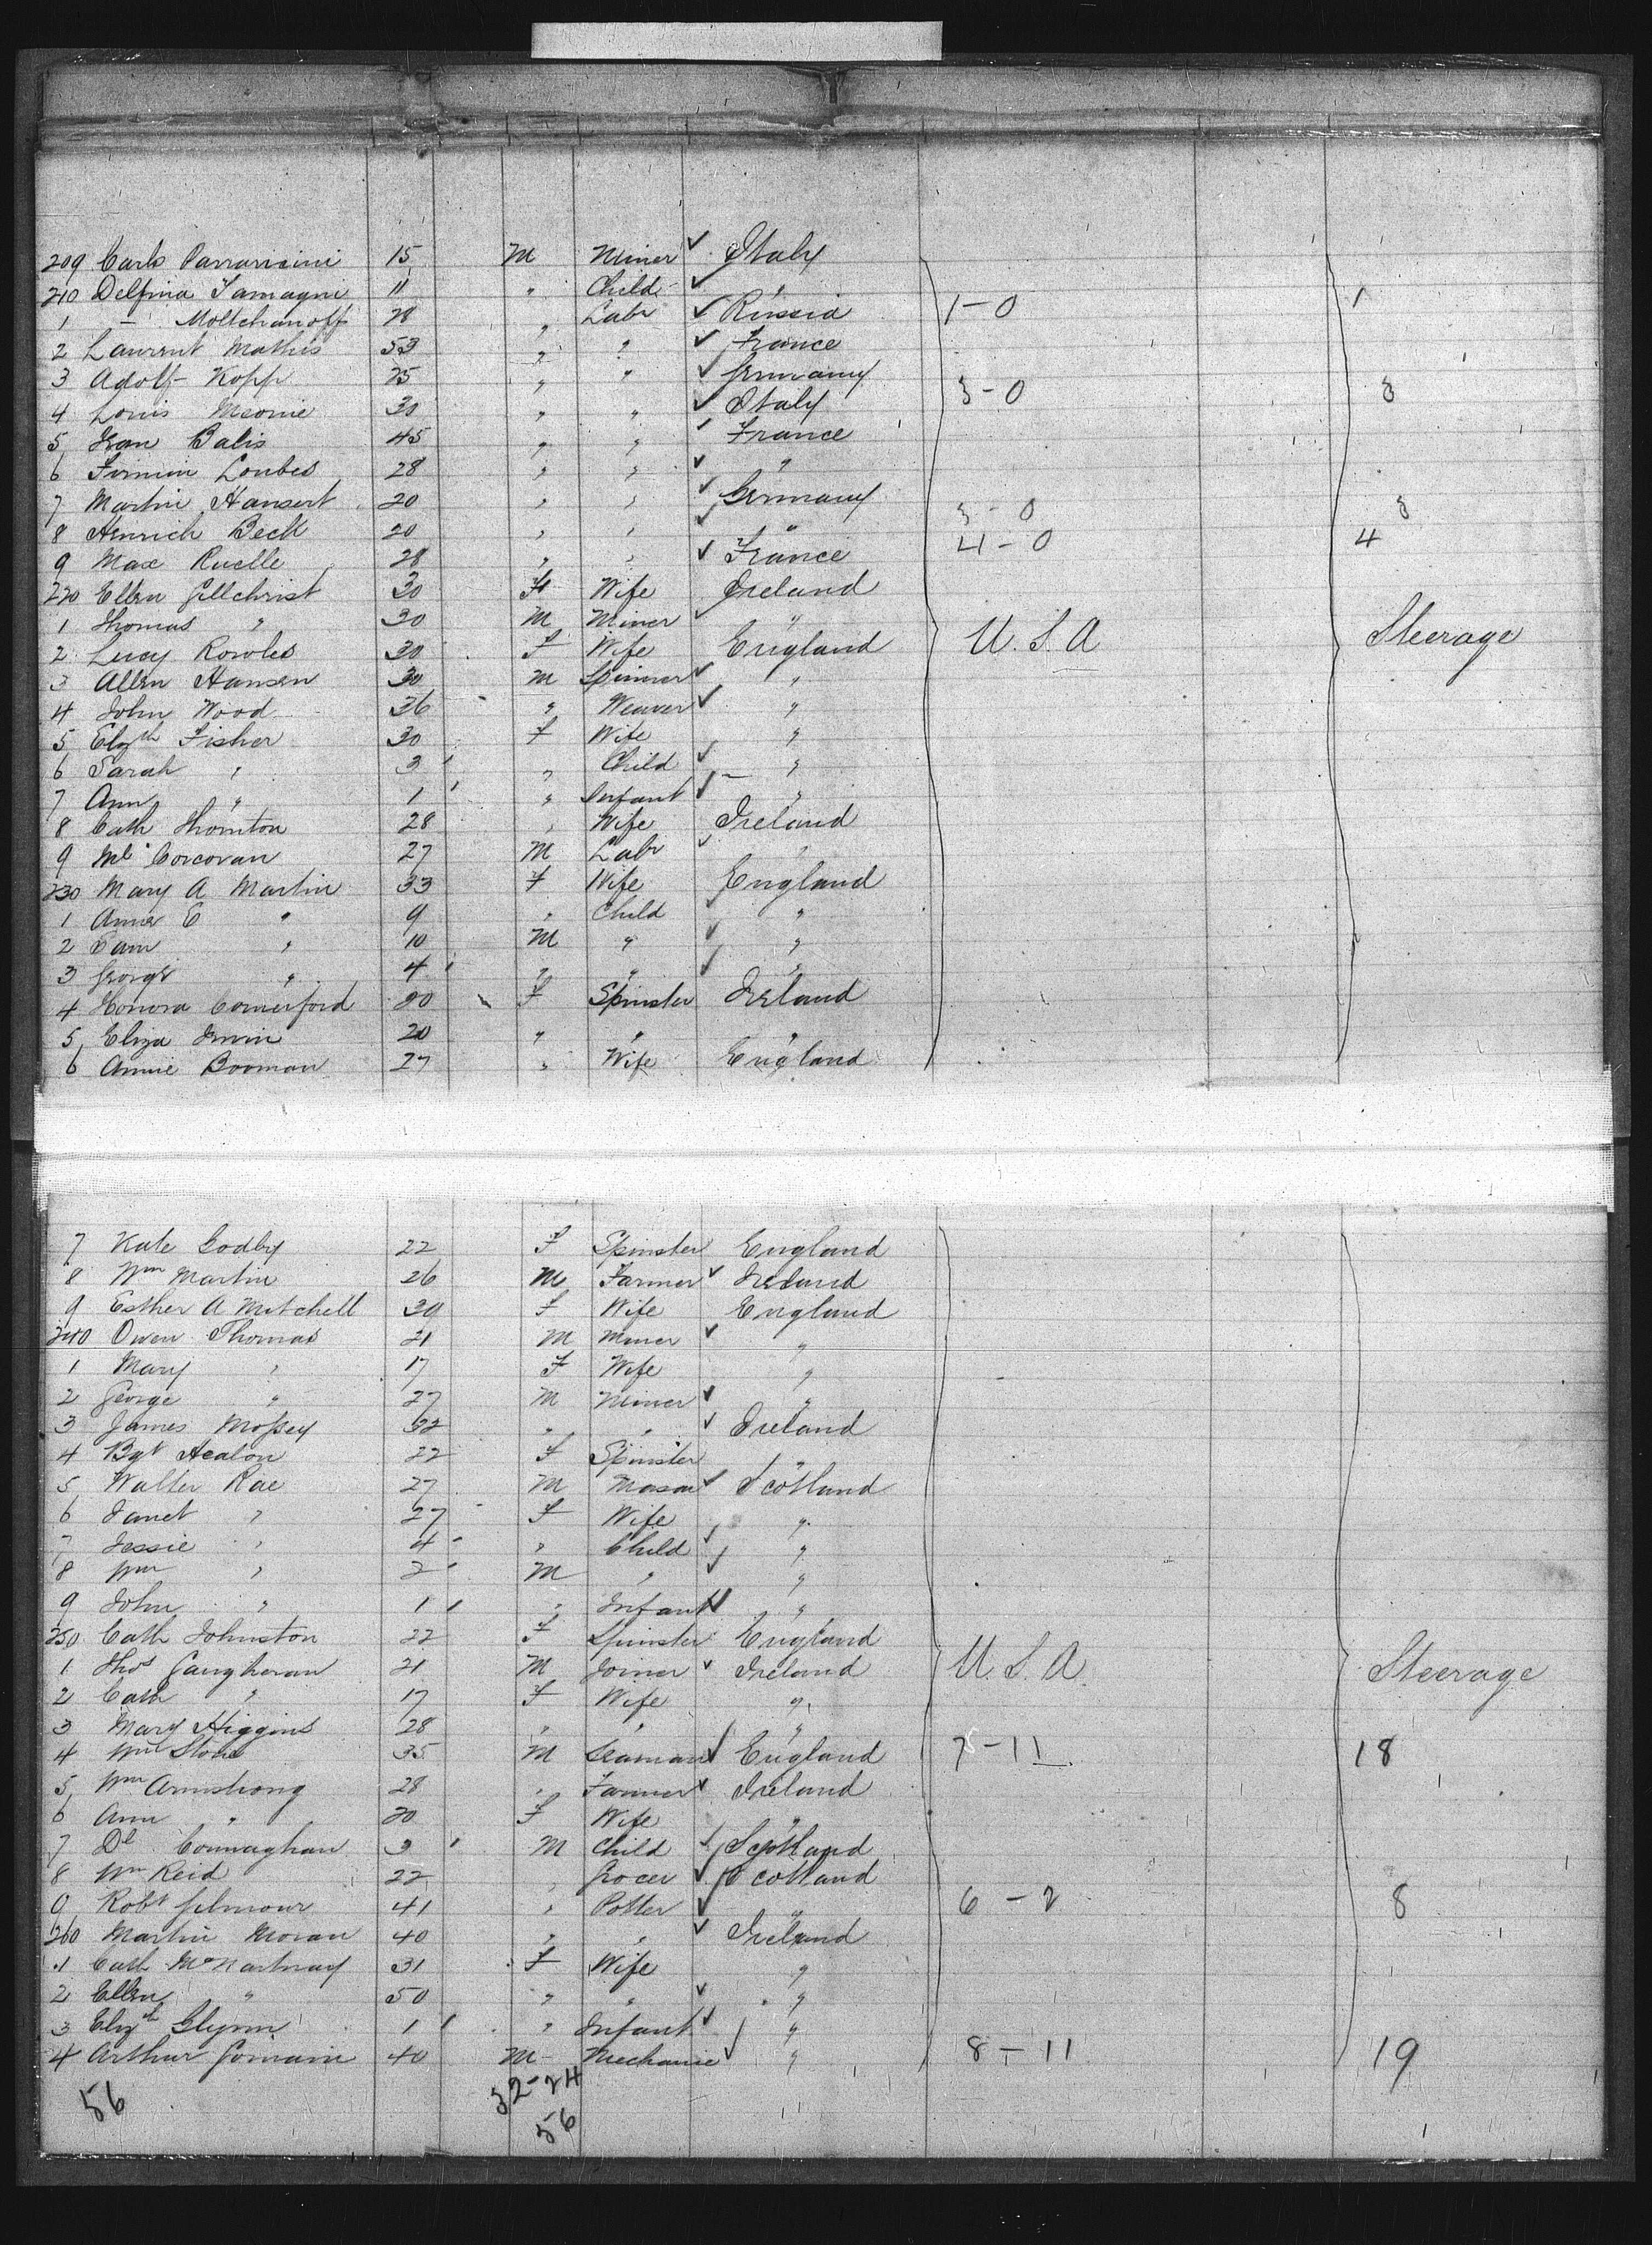 209 Carlo Parravicini 15 M Miner ✓ Italy
210 Delfina Tamagni 11 " Child ✓ "
1 — Moltchanoff 28 " Labr ✓ Russia 1-0 1
2 Laurent Mathis 53 " " ✓ France
3 Adolf Kopp 25 " " ✓ Germany
4 Louis Meonie 30 " " ✓ Italy 3-0 3
5 Jean Balis 45 " " ✓ France
6 Firmin Loubes 28 " " ✓ "
7 Martin Hansert 20 " " ✓ Germany
8 Henrich Beck 20 " " ✓ " 3-0 3
9 Max Ruelle 28 " " ✓ France 4-0 4
220 Ellen Gillchrist 30 F Wife Ireland
1 Thomas " 30 M Miner ✓ "
2 Lucy Rowles 30 F Wife England U.S.A Steerage
3 Allen Hansen 30 M Spinner ✓ "
4 John Wood 36 " Weaver ✓ "
5 Elizth Fisher 30 F Wife "
6 Sarah " 3 " Child ✓ "
7 Ann " 1 " Infant ✓ "
8 Cath Thornton 28 " Wife Ireland
9 Ml Corcoran 27 M Labr ✓ "
230 Mary A Martin 33 F Wife England
1 Anna E " 9 " Child ✓ "
2 Sam " 10 M " ✓ "
3 George " 4 " " ✓ "
4 Honora Comerford 20 F Spinster Ireland
5 Eliza Irwin 20 " " "
6 Annie Booman 27 " Wife England
7 Kate Godby 22 F Spinster England
8 Wm Martin 26 M Farmer ✓ Ireland
9 Esther A Mitchell 30 F Wife England
240 Owen Thomas 21 M Miner ✓ "
1 Mary " 17 F Wife "
2 George " 27 M Miner ✓ "
3 James Mossey 32 " " ✓ Ireland
4 Bgt Healon 22 F Spinster "
5 Walter Rae 27 M Mason ✓ Scotland
6 Janet " 27 F Wife "
7 Jessie " 4 " Child ✓ "
8 Wm " 2 M " ✓ "
9 John " 1 " Infant ✓ "
250 Cath Johnston 22 F Spinster England
1 Thos Gaugheran 21 M Joiner ✓ Ireland U.S.A Steerage
2 Cath " 17 F Wife "
3 Mary Higgins 28 " " "
4 Wm Stone 35 M Seaman ✓ England 7-11 18
5 Wm Armstrong 28 " Farmer ✓ Ireland
6 Ann " 20 F Wife "
7 Dl Connaghan 3 M Child ✓ Scotland
8 Wm Reid 22 " Grocer ✓ Scotland
9 Robt Gilmour 41 " Potter ✓ " 6-2 8
260 Martin Moran 40 " " ✓ Ireland
1 Cath McNartnay 31 F Wife "
2 Ellen " 50 " " ✓ "
3 Elizth Glynn 1 " Infant ✓ "
4 Arthur Gomain 40 M Mechanic ✓ " 8-11 19
56 32-24
56